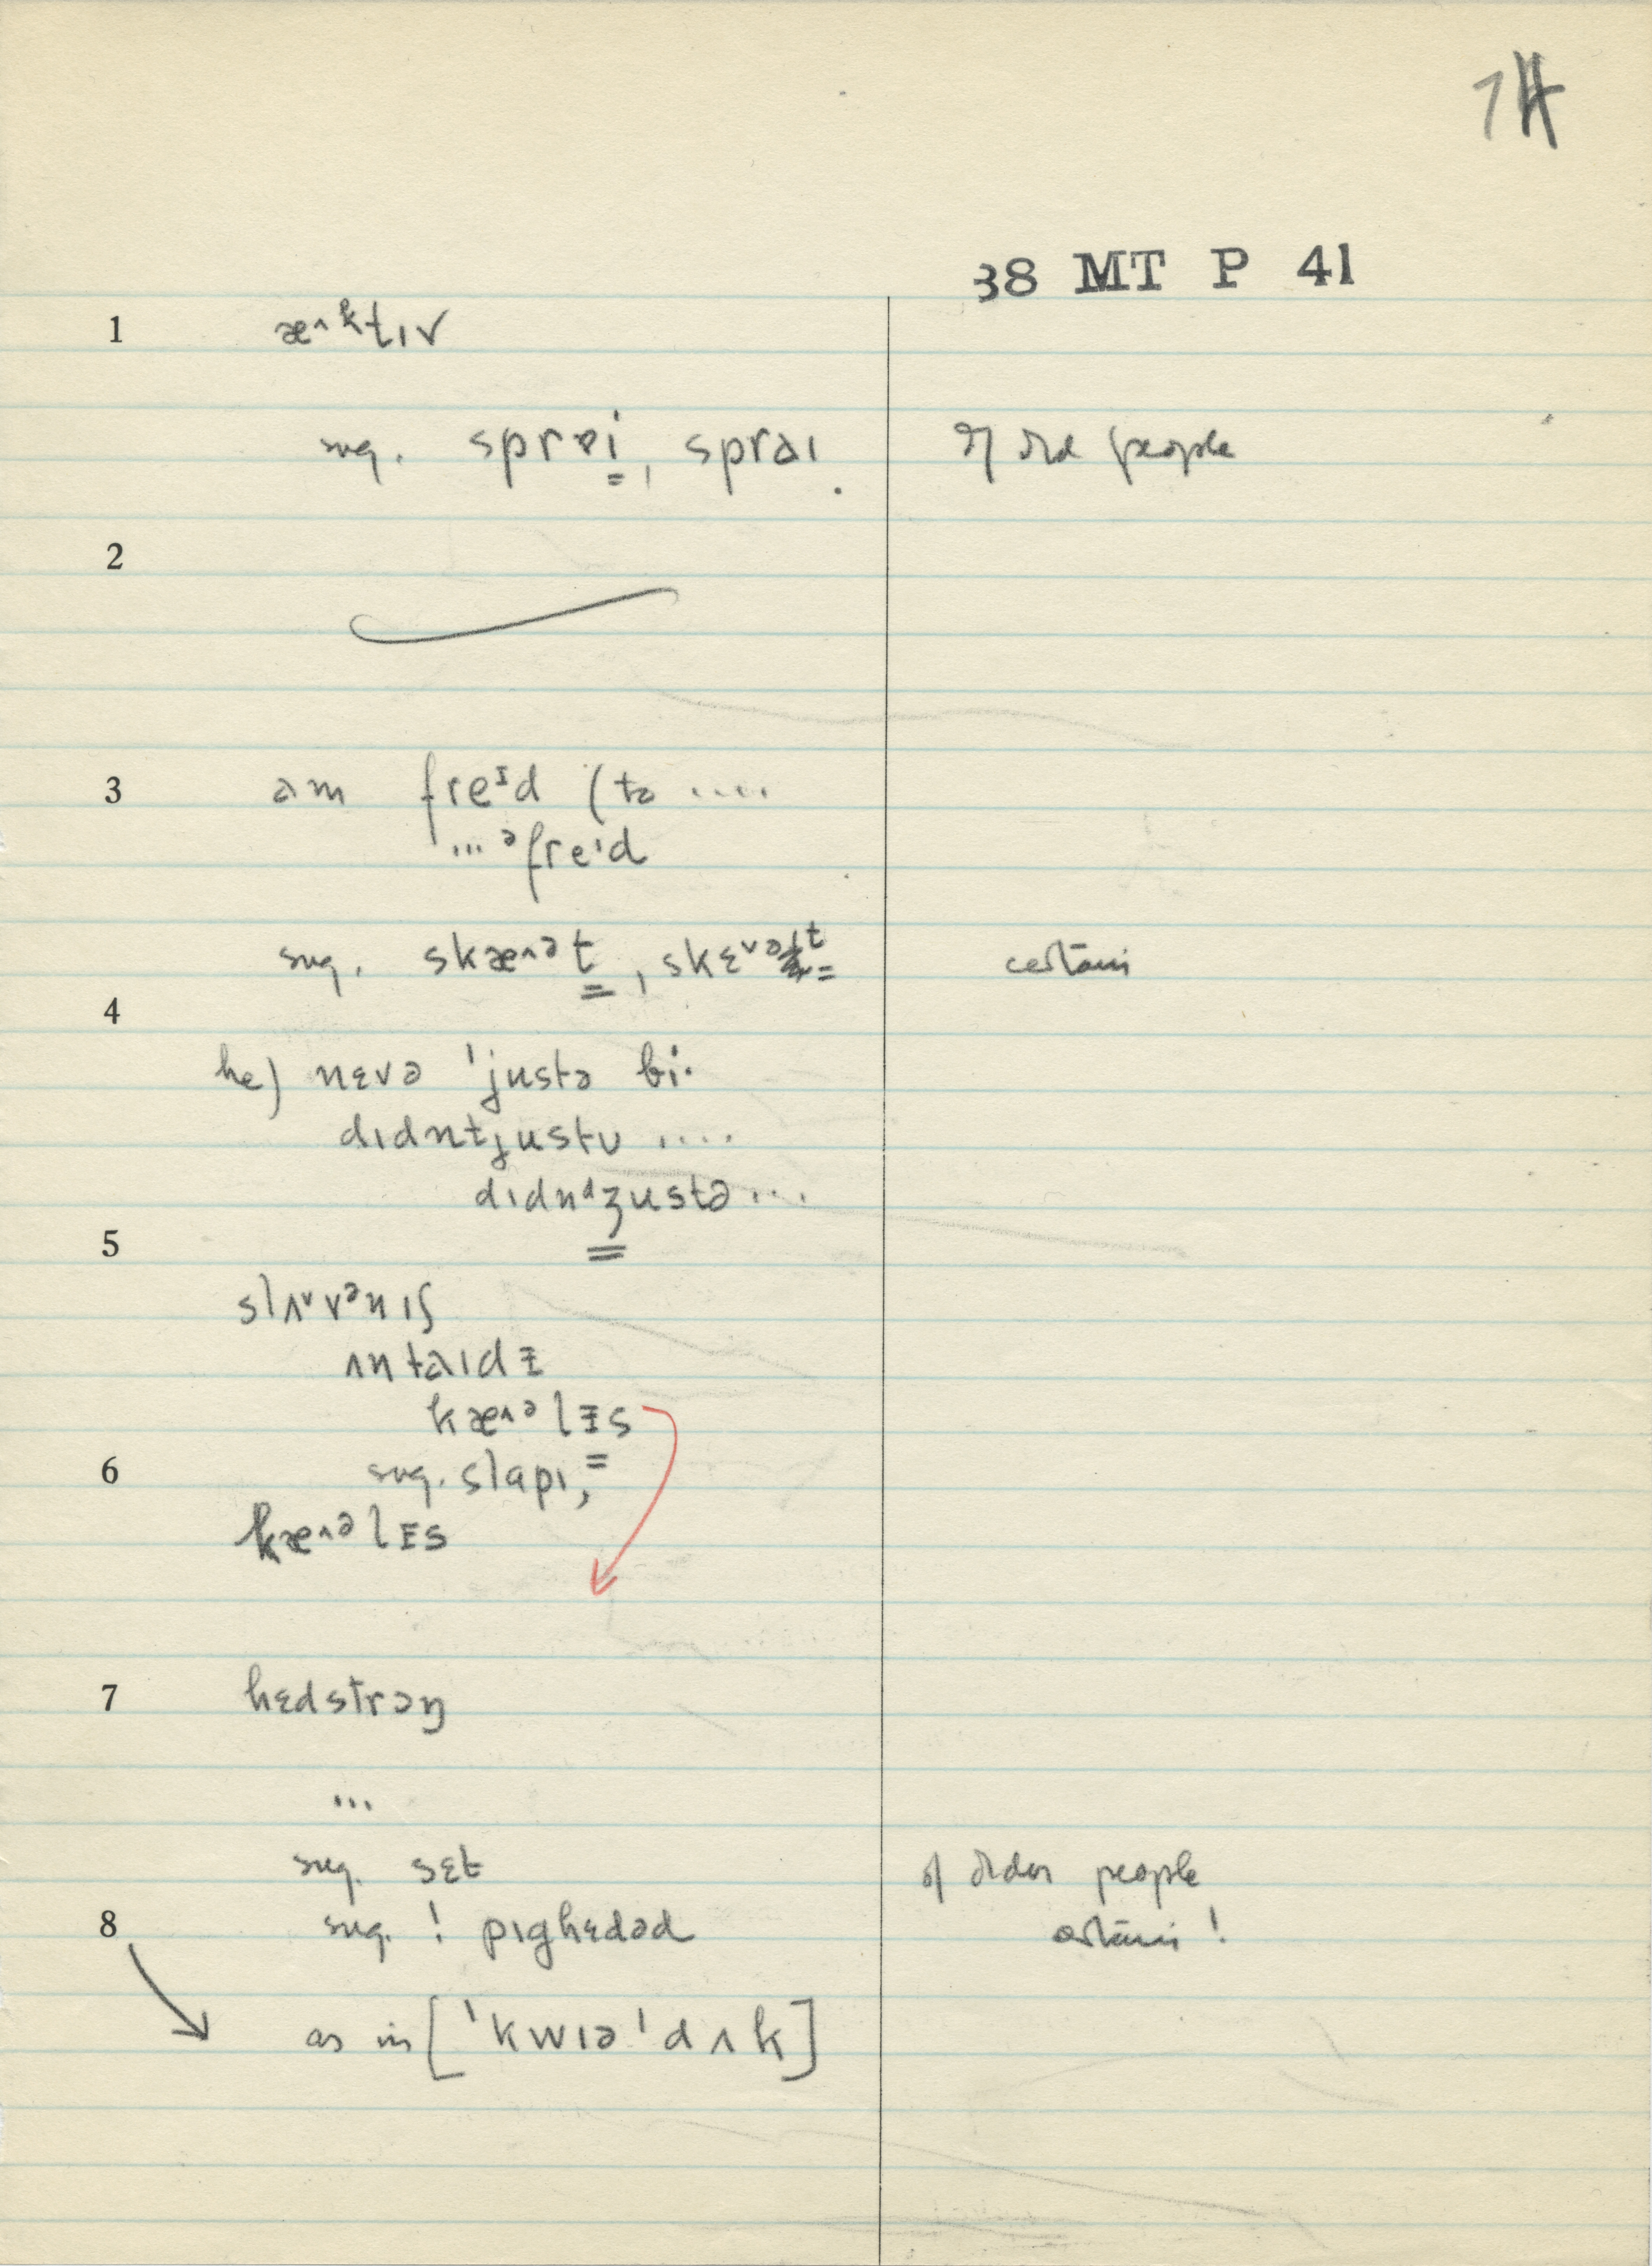 38 MT P 41
1 æ˄ᵏtɪv
sug. sprɐi̳, spraɪ. of old people
2
3 am freᶦd (tə ....
... ᵊfreɪd
sug. skæ˄ᵊt̳, skɛ˅ᵊt̳ certain
4
he) nɛvə ˈjustə bi·
dɪdntjustʊ ....
dɪdnᵈʒ̳ustə ...
5
slʌ˅vᵊnɪʃ
ʌntaɪdɪ
kæ˄ᵊlɪs
6 sug. slapɪ,
kæ˄ᵊlɪs
7 hɛdstrɔŋ
...
sug. sɛt of older people
8 sug. ! pɪghɛdəd certain!
as in [ˈkwɪəˈdʌk]